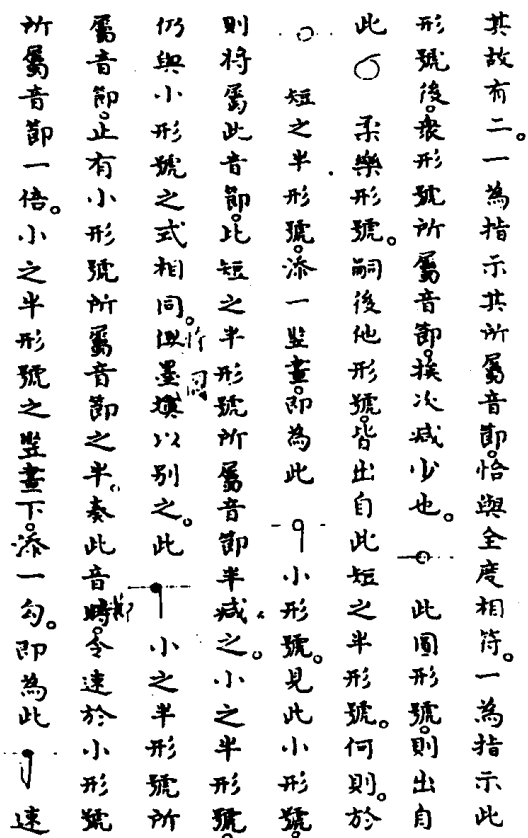 其故有二。一為指示其所屬音節。恰與全度相符。一為指示此
形號後。衆形號所屬音節。挨次減少也。此圓形號。則出自
此柔樂形號。嗣後他形號。皆出自此短之半形號。何則。於
短之半形號。添一竪畫。即為此小形號。見此小形號。
則將屬此音節。此短之半形號所屬音節半減之。小之半形號。
仍與小形號之式相同。但墨填以別之。此小之半形號所
屬音節。止有小形號所屬音節之半。奏此音時。令速於小形號
所屬音節一倍。小之半形號之竪畫下。添一勾。即為此速